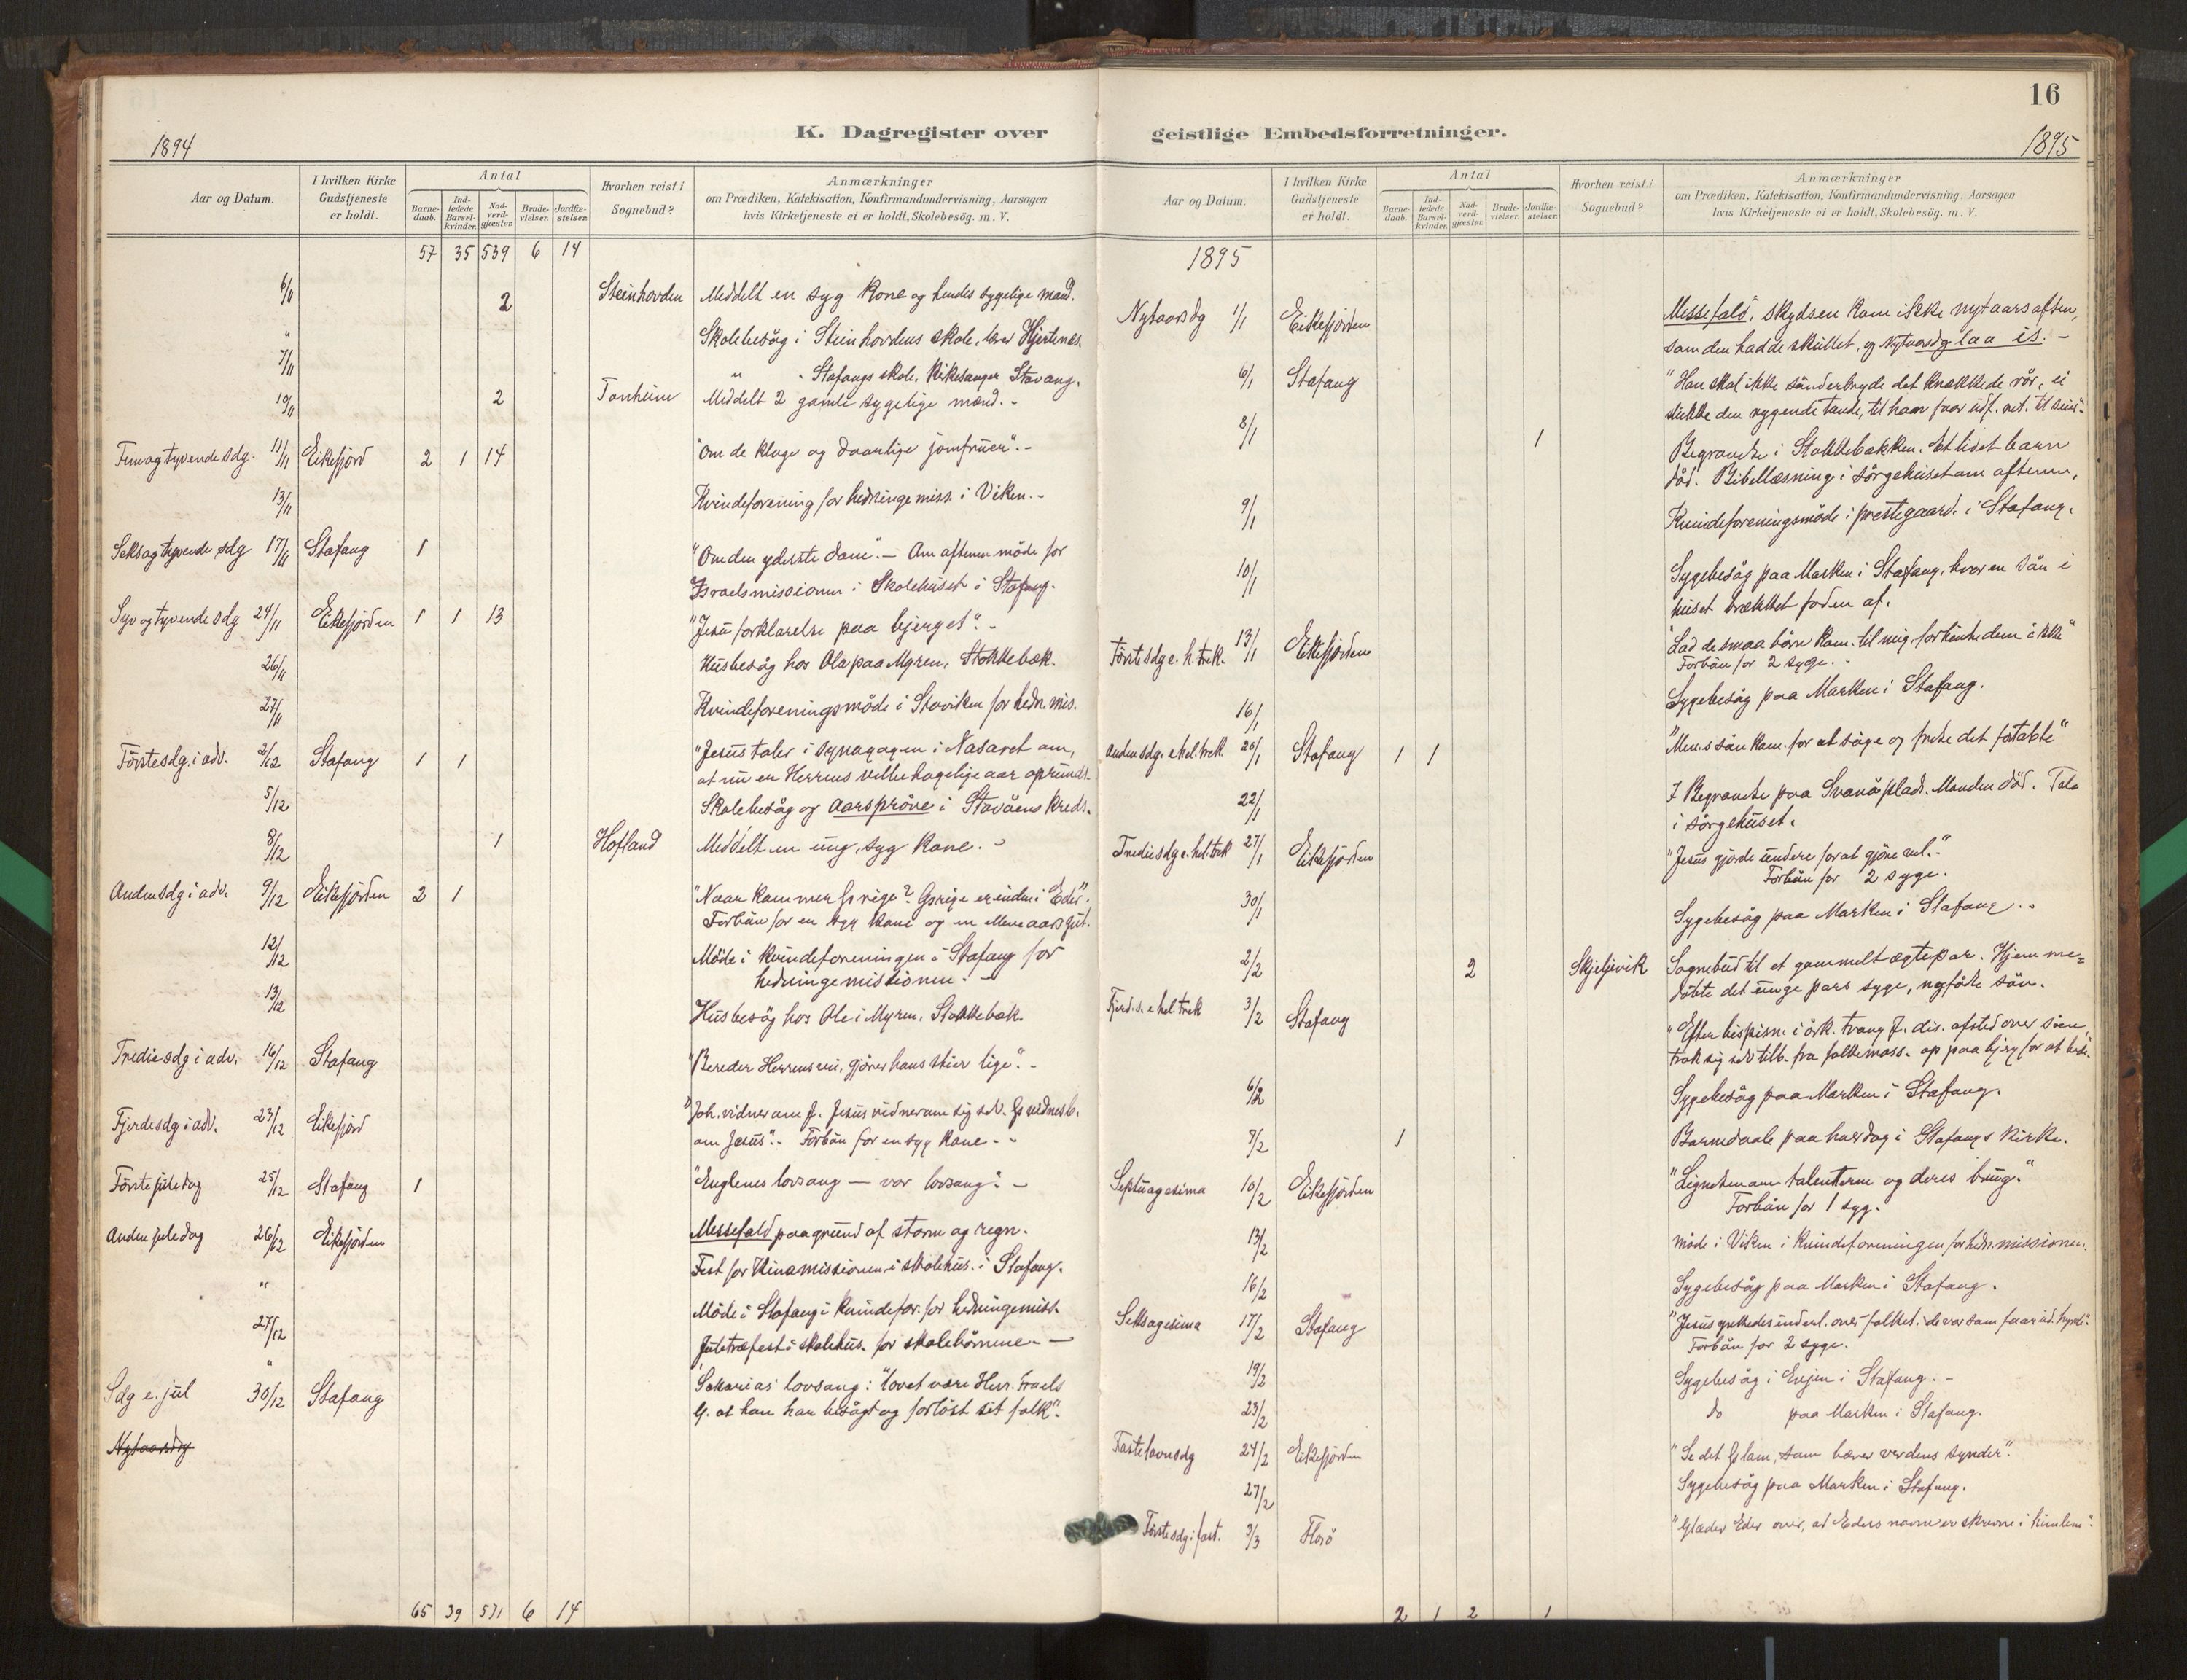 16
K. Dagregister over geistlige Embedsforretninger.
1894
1895
Aar og Datum.
I hvilken Kirke Gudstjeneste er holdt.
Antal
Barnedaab.
Indledede Barselkvinder.
Nadverdgjæster.
Brudevielser.
Jordfæstelser.
Hvorhen reist i Sognebud?
Anmærkninger
om Prædiken, Katekisation, Konfirmandundervisning, Aarsagen
hvis Kirketjeneste ei er holdt, Skolebesög. m. V.
57 35 539 6 14
6/11 2 Steinhovden Meddelt en syg kone og hendes sygelige mand.
" Skolebesøg i Steinhovdens skole, lærer Hjertenes.
7/11 " " Stafangs skole. Kirkesanger Stavang.
10/11 2 Tonheim Meddelt 2 gamle sygelige mænd.-
Femogtyvende sdg. 11/11 Eikefjord 2 1 14 "Om de kloge og daarlige jomfruer".-
13/11 Kvindeforening for hedningemiss. i Viken.-
Seksogtyvende sdg 17/11 Stafang 1 "Om den yderste dom".- Om aftenen møde for
Israelsmissionen i Skolehuset i Stafang.
Syvogtyvende sdg 24/11 Eikefjorden 1 1 13 "Jesu forklarelse paa bjerget".-
26/11 Husbesøg hos Ola paa Myren, Stokkebæk.
27/11 Kvindeforeningsmøde i Stavviken for hedn. mis.
Første sdg. i adv. 2/12 Stafang 1 1 "Jesus taler i synagogen i Nasaret om,
at nu er Herrens velbehagelige aar oprundt.
5/12 Skolebesøg og aarsprøve i Stavåens kreds.
8/12 1 Hofland Meddelt en ung, syg kone.-
Anden sdg i adv. 9/12 Eikefjorden 2 1 "Naar kommer Gs rige? Gs rige er inden i Eder".
Forbøn for en syg kone og en elleveaars gut.
12/12 Møde i kvindeforeningen i Stafang for
hedningemissionen.-
13/12 Husbesøg hos Ole i Myren, Stokkebæk.
Tredie sdg i adv. 16/12 Stafang "Bereder Herrens vei, gjører hans stier lige".-
Fjerde sdg i adv. 23/12 Eikefjord "Joh. vidner om J. Jesus vidner om sig selv. Gs vidnesb.
om Jesus".- Forbøn for en syg kone.-
Første juledag 25/12 Stafang 1 "Englenes lovsang — vor lovsang".-
Anden juledag 26/12 Eikefjorden Messefald paa grund af storm og regn.
" Fest for Kinamissionen i skolehus. i Stafang.
27/12 Møde i Stafang i kvindefor. for hedningemiss.
" Juletræfest i skolehus. for skolebørnene.—
Sdg e. jul 30/12 Stafang Sakarias' lovsang: "Lovet være Herr. Israels
G. at han har besøgt og forløst sit folk".
Nytaarsdg
65 39 571 6 14
Aar og Datum.
I hvilken Kirke Gudstjeneste er holdt.
Antal
Barnedaab.
Indledede Barselkvinder.
Nadverdgjæster.
Brudevielser.
Jordfæstelser.
Hvorhen reist i Sognebud?
Anmærkninger
om Prædiken, Katekisation, Konfirmandundervisning, Aarsagen
hvis Kirketjeneste ei er holdt, Skolebesög. m. V.
1895
Nytaarsdg 1/1 Eikefjorden Messefald, skydsen kom ikke nytaarsaften,
som den hadde skullet, og Nytaarsdg laa is.-
6/1 Stafang "Han skal ikke sønderbryde det knækkede rør, ei
slukke den rygende tande, til han faar udf. ret. til seier".
8/1 1 Begravelse i Stokkebækken. Et lidet barn
død. Bibellæsning i sørgehuset om aftenen,
9/1 Kvindeforeningsmøde i prestegaard. i Stafang.
10/1 Sygebesøg paa Marken i Stafang, hvor en søn i
huset brækket foden af.
Første sdg e. h. trek. 13/1 Eikefjorden "Lad de smaa børn kom. til mig, forhindre dem ikke"
Forbøn for 2 syge.-
16/1 Sygebesøg paa Marken i Stafang.
Anden sdg. e hel. trek. 20/1 Stafang 1 1 "Men.s søn kom. for at søge og frelse det fotabte"
22/1 I Begravelse paa Svanø plads. Manden død. Tale
i sørgehuset.
Tredie sdg e. hel. trek 27/1 Eikefjorden "Jesus gjorde undere for at gjøre vel."
Forbøn for 2 syge.
30/1 Sygebesøg paa Marken i Stafang.-
2/2 2 Skjeljevik Sognebud til et gammelt ægtepar. Hjemme=
døbte det unge pars syge, nyfødte søn.
Fjerd. s. e hel. trek 3/2 Stafang "Efter bespisn. i ørk. tvang J. dis. afsted over søen,
trak sig selv tilb. fra folkemass. op paa bjerg for at bede".
6/2 Sygebesøg paa Marken i Stafang.
7/2 1 Barnedaab paa hverdag i Stafangs kirke.
Septuagesima 10/2 Eikefjorden "Lignelsen om talenterne og deres brug."
Forbøn for 1 syg.
13/2 Møde i Viken i kvindeforeningen for hedn. missionen.
16/2 Sygebesøg paa Marken i Stafang.
Seksagesima 17/2 Stafang "Jesus ynkedes inderl. over folket.
Forbøn for 2 syge.
19/2 Sygebesøg i Enjen i Stafang.-
23/2 do paa Marken i Stafang.
Fastelavnsdg 24/2 Eikefjorden "Se det Gs lam, som bærer verdens synder".
27/2 Sygebesøg paa Marken i Stafang.
Første sdg i fast. 3/3 Florø "Glæder Eder over, at Eders navne er skrevne i himlene".
2 1 2 1